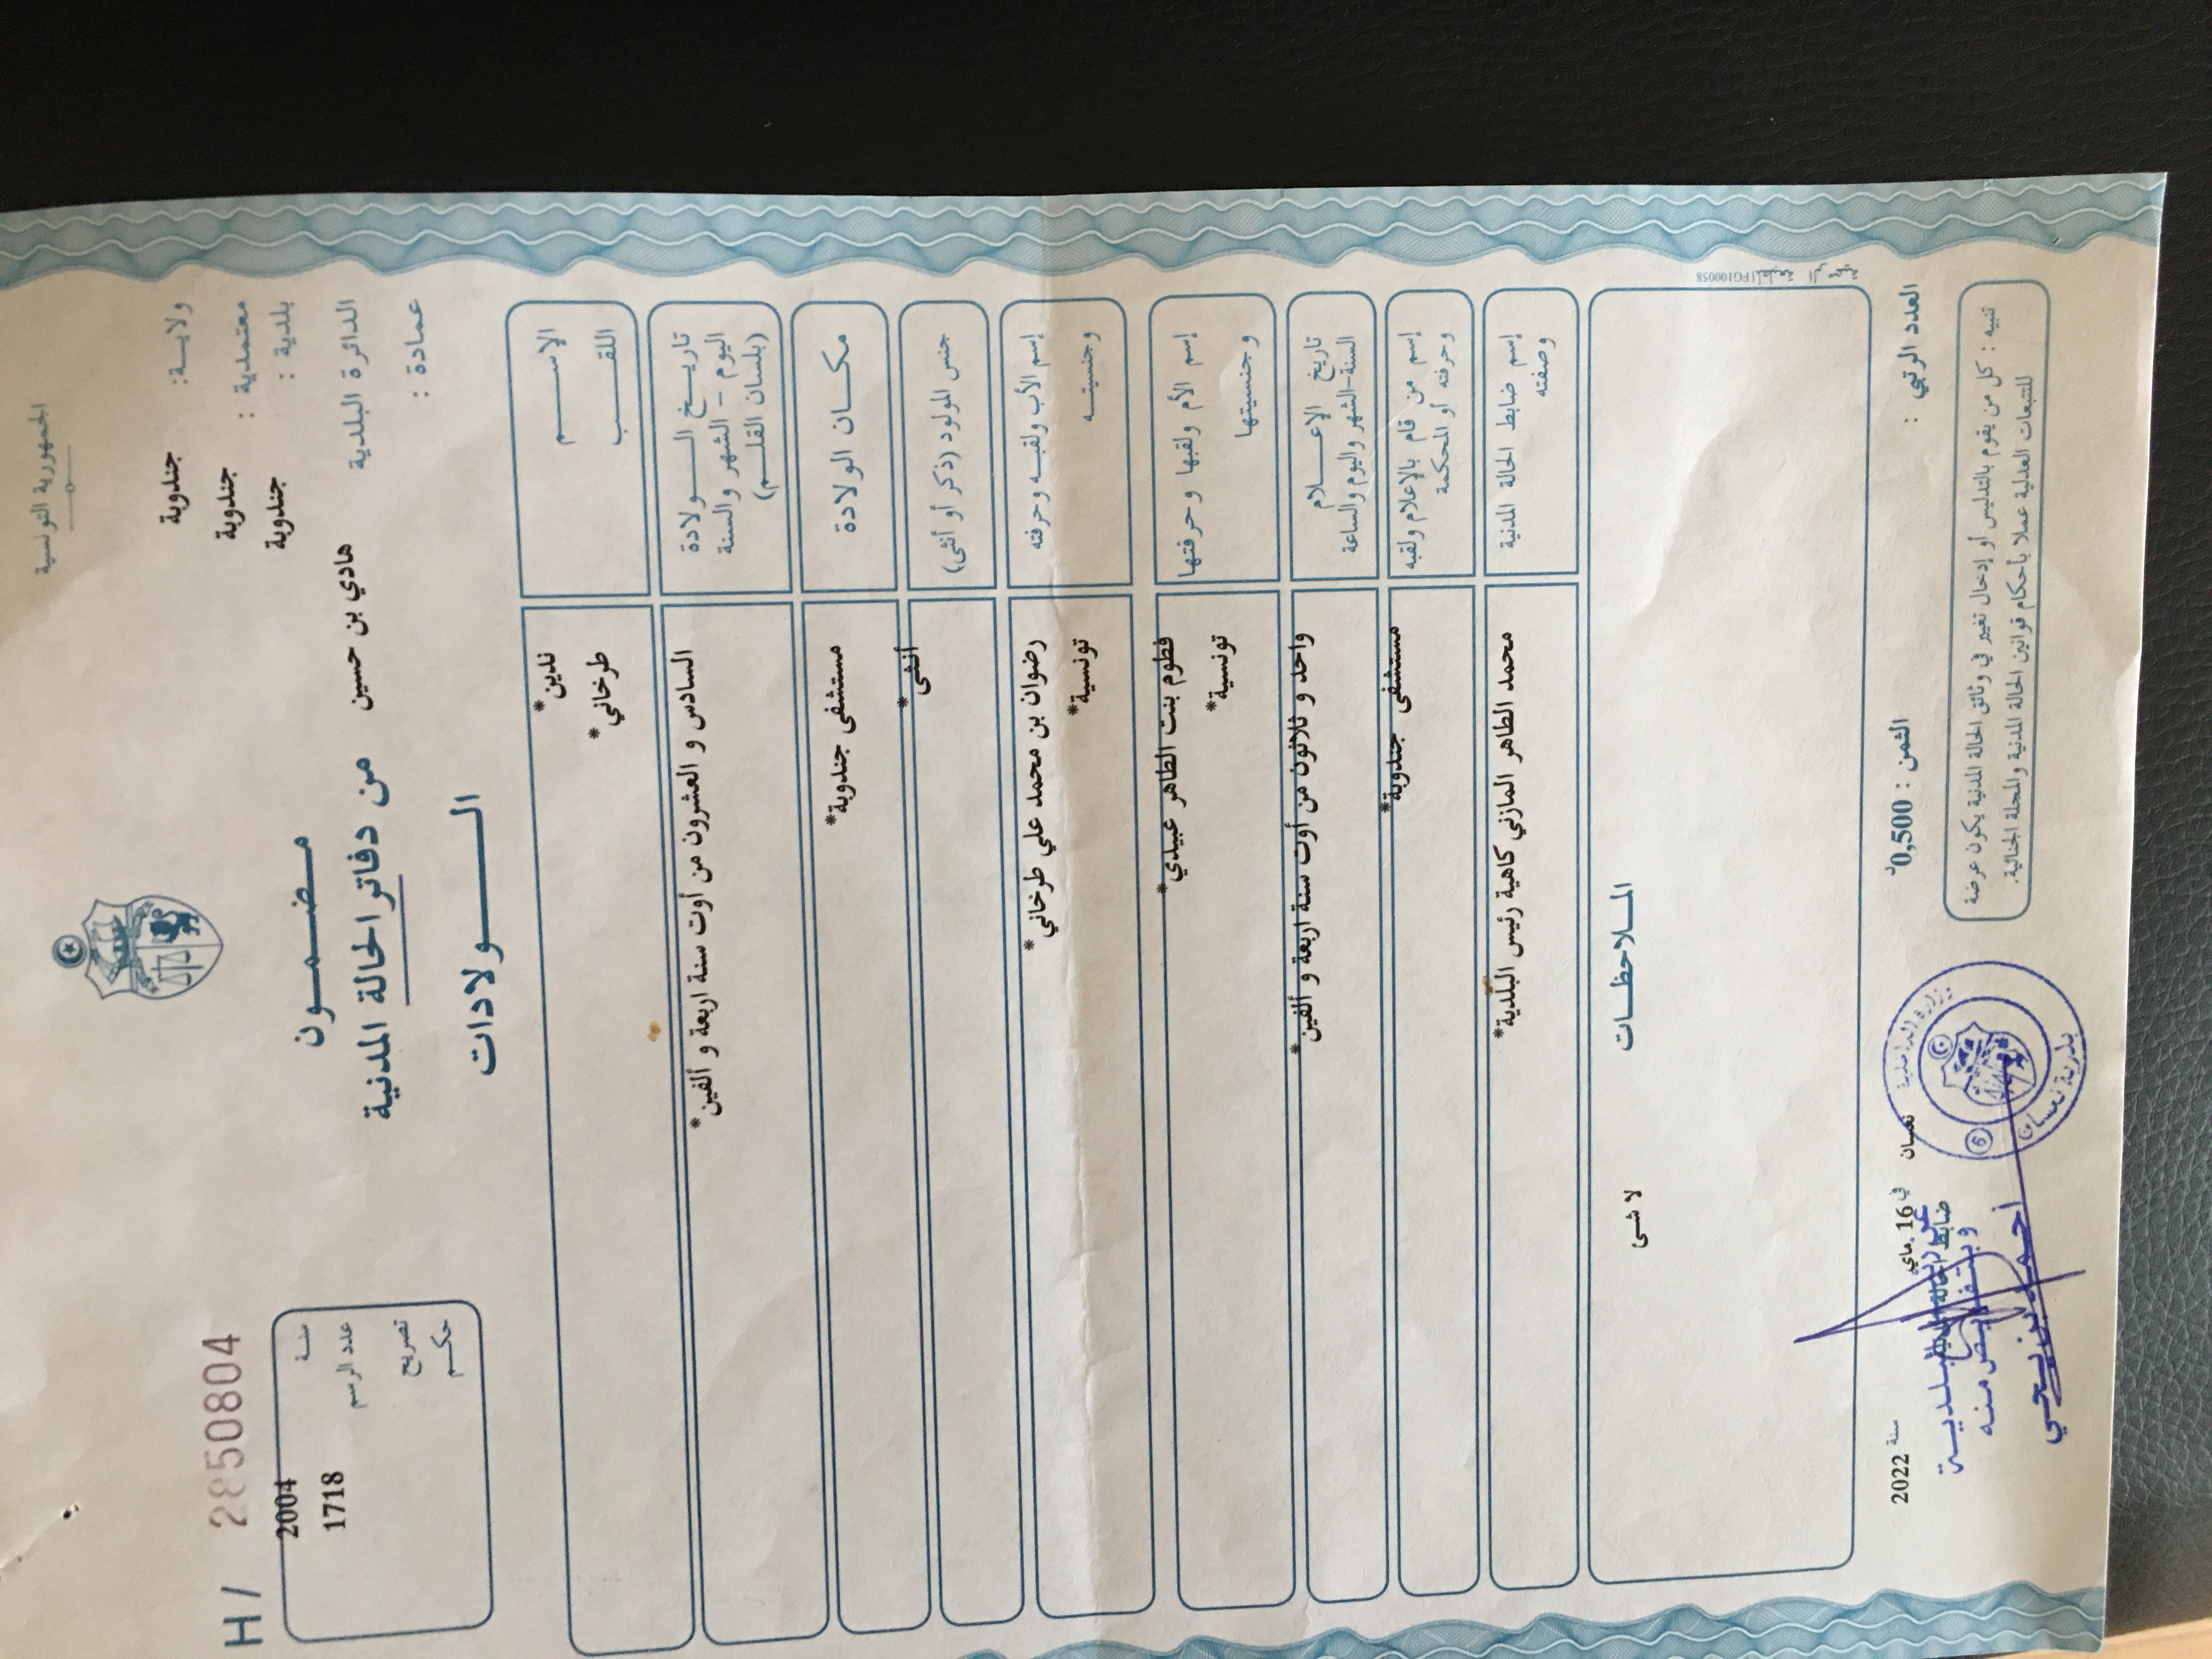 الجمهورية التونسية
ولايــة: جندوبة
معتمدية : جندوبة
بلدية : جندوبة
الدائرة البلدية هادي بن حسين
عمادة :
H/ 2850804
2004 سنــة
1718 عدد الرسم
تصريح
حكـم
مضمــون
من دفاتر الحالة المدنية
الــولادات
الإســـم ندين*
اللقــب طرخاني*
تاريــخ الــولادة
اليوم – الشهر والسنة
(بلسان القلــم)
السادس و العشرون من أوت سنة اربعة و ألفين*
مكــان الولادة مستشفى جندوبة*
جنس المولود (ذكر أو أنثى) أنثى*
إسم الأب ولقبــه وحرفته رضوان بن محمد علي طرخاني*
وجنسيتــه تونسية*
إسم الأم ولقبها وحرفتها فطوم بنت الطاهر عبيدي*
وجنسيتها تونسية*
تاريخ الإعــلام
السنة-الشهر واليوم والساعة
واحد و ثلاثون من أوت سنة اربعة و ألفين*
إسم من قام بالإعلام ولقبه
وحرفته أو المحكمة
مستشفى جندوبة*
إسم ضابط الحالة المدنية
وصفته
محمد الطاهر المازني كاهية رئيس البلدية*
الملاحظــات
لا شئ
FG100058
العدد الرتبي :
الثمن : 0,500د
نفسان في 16 ماي سنة 2022
ضابط الحالة المدنية
وبتفويض منه
وزارة الداخلية
6
تنبيه : كل من يقوم بالتدليس أو إدخال تغيير في وثائق الحالة المدنية يكون عرضة
للتبعات العدلية عملا بأحكام قوانين الحالة المدنية والمجلة الجنائية.